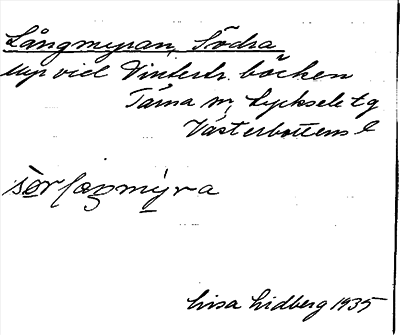 Långmyran, Södra
Myr vid Vinterstr. bäcken
Tärna m, Lycksele tg
Västerbottens l
sörlaŋmýra
Lisa Lidberg 1935